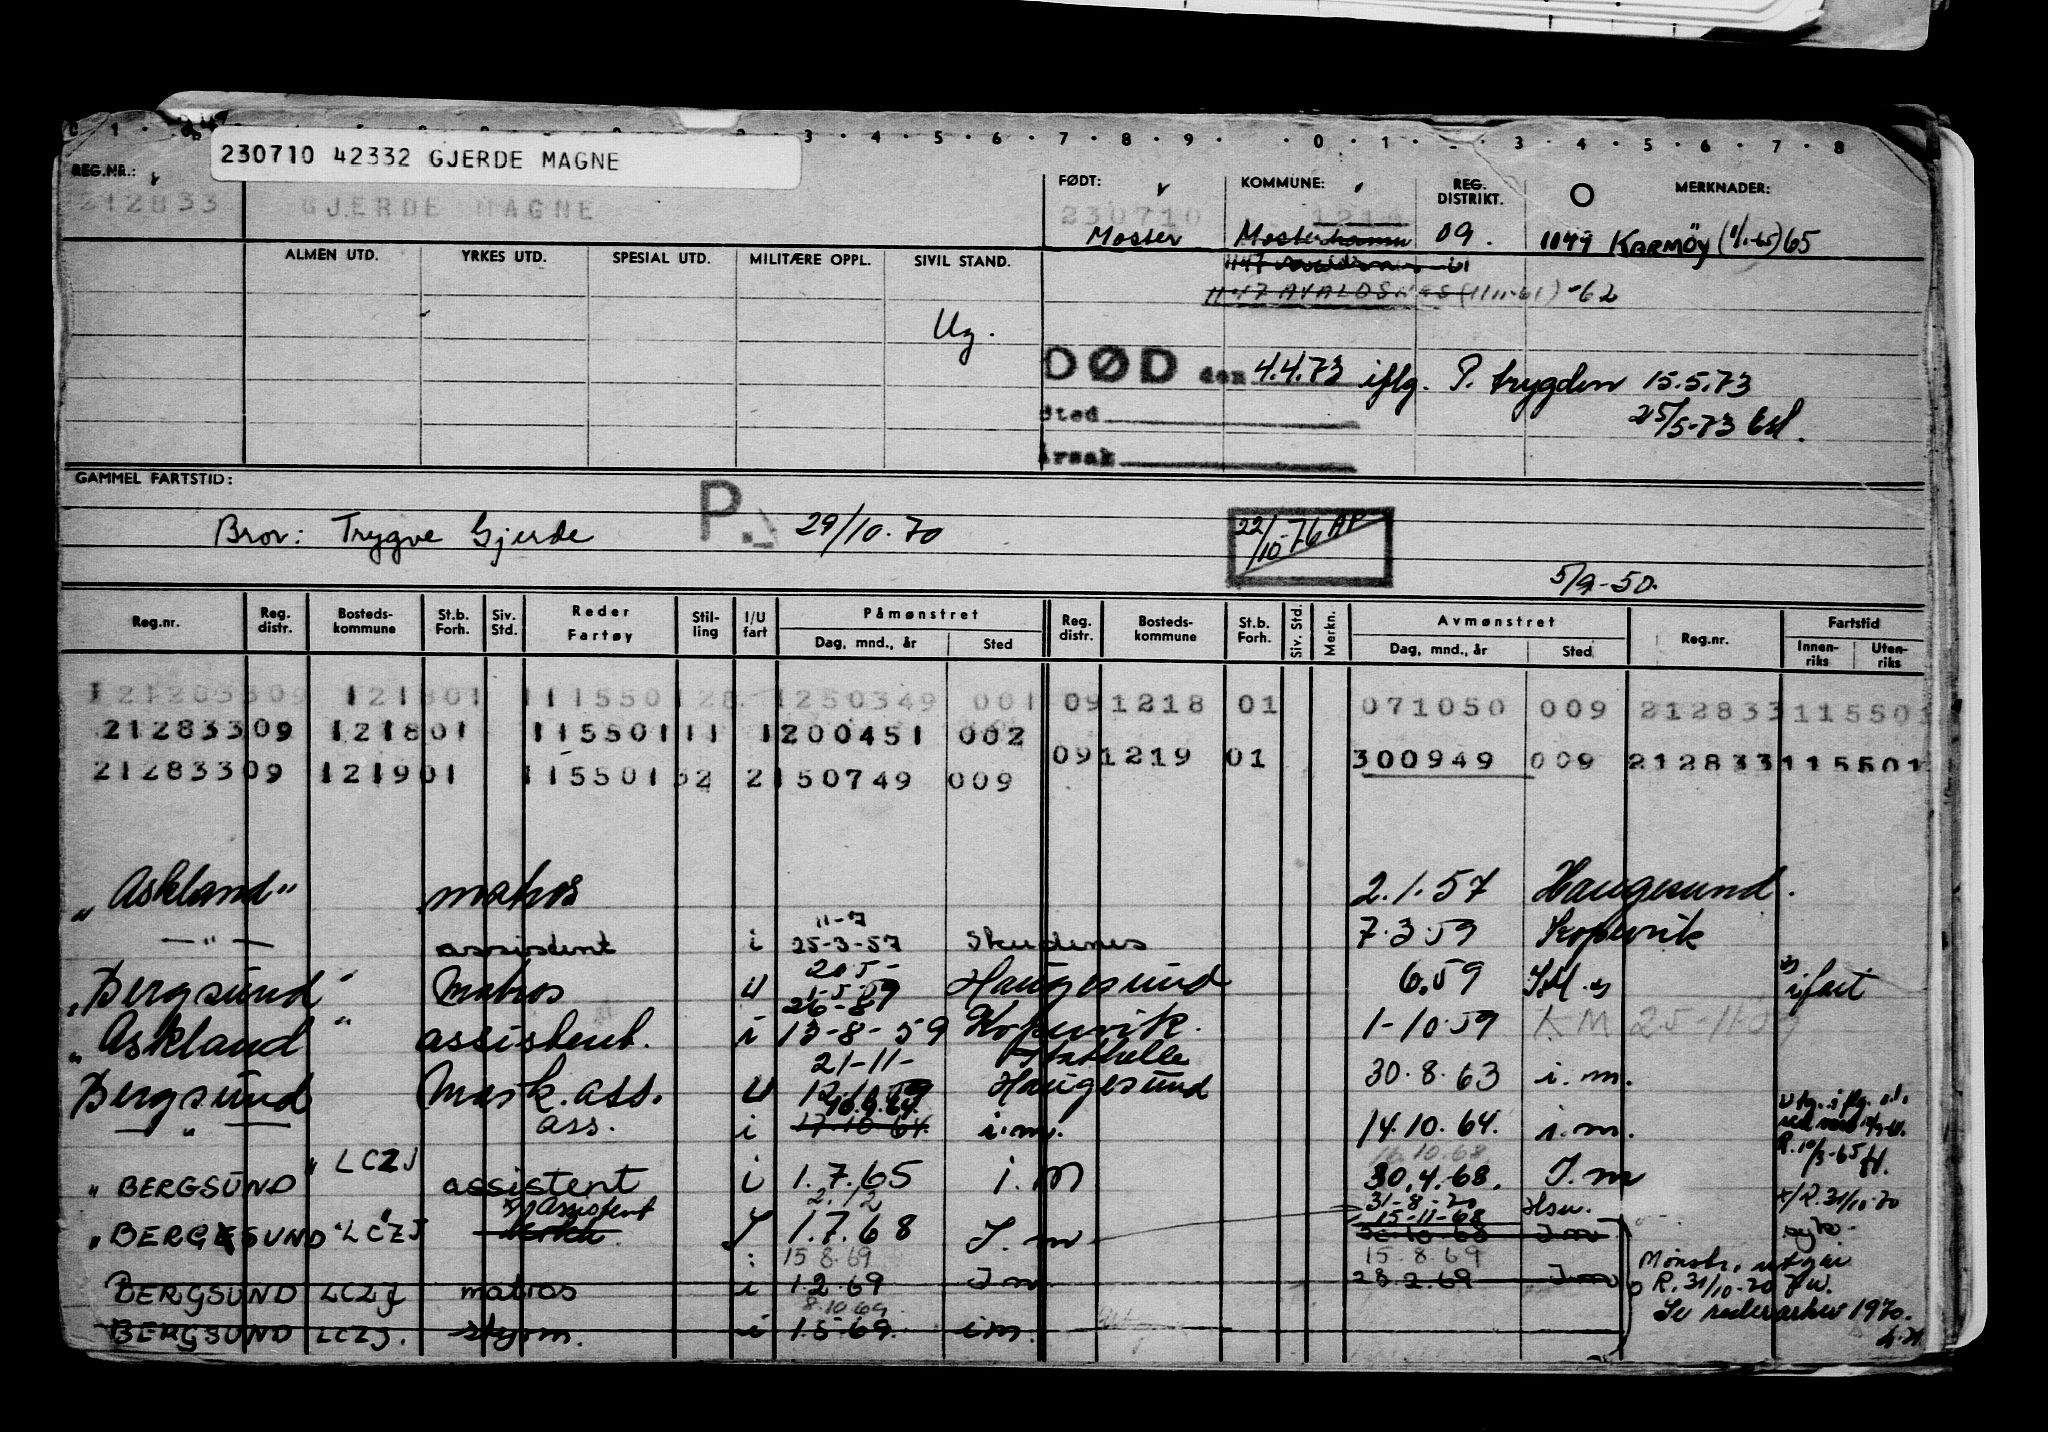 230710 42332 GJERDE MAGNE
REG.NR.: FØDT: KOMMUNE: REG. DISTRIKT. MERKNADER:
212833 GJERDE MAGNE 230710 1218
Moster Mosterhamn 09. 1149 KARMÖY (1/1-65) 65
ALMEN UTD. YRKES UTD. SPESIAL UTD. MILITÆRE OPPL. SIVIL STAND.
1147 AVALDSNES (1/11-61) -62
Ug.
DØD den 4.4.73 iflg. P. trygden 15.5.73
Sted 25/5-73
Årsak
GAMMEL FARTSTID:
Bror: Trygve Gjerde P. 29/10.70 22/10-76 AP
5/9-50.
Reg.nr. Reg. distr. Bosteds-kommune St.b. Forh. Siv. Std. Reder Fartøy Stil-ling I/U fart Påmønstret Reg. distr. Bosteds-kommune St.b. Forh. Siv. Std. Merkn. Avmønstret Reg.nr. Fartstid
Dag, mnd., år Sted Dag, mnd., år Sted Innen-riks Uten-riks
121801 11155012 1250349 001 091218 01 071050 009 212833115501
21283309 121801 115501 11 1200451 002
091219 01 300949 009 212833115501
21283309 121901 115501 32 2150749 009
"Askland" matros 2.1.57 Haugesund.
11-7
— " — assistent i 25-3-57 Skudenes 7.3.59 Kopervik
20.5-
"Bergsund" Matros U Haugesund 6.59 i fart
"Askland" assistent. i 13-8-59 Kopervik. 1-10-59 KM 25-11-59
21-11- Stathelle
Bergsund Mask.ass. U Haugesund 30.8.63 i.m.
10.9.64.
— " — ass. i 17.10.64. i.m. 14.10.64. i.m.
R.10/3-65
16.10.68
"BERGSUND" LCZJ assistent i 1.7.65 i.m 30.4.68. I.m
2.12 31-8-70 Hsu. x/R.31/10-70
x) Assistent 15-11-68
"BERGESUND" "LCZJ" 1.7.68 I.m 30-10-68 I.m
15 8.69 15.8.69 Mønstr. utgår
BERGSUND LCZJ matros i 1.2.69 I.m 28.2.69 I.m R.31/10-70
8.10.69 Se rederarkiv 1970.
BERGSUND LCZJ. styrm. i 1.5.69. i.m.